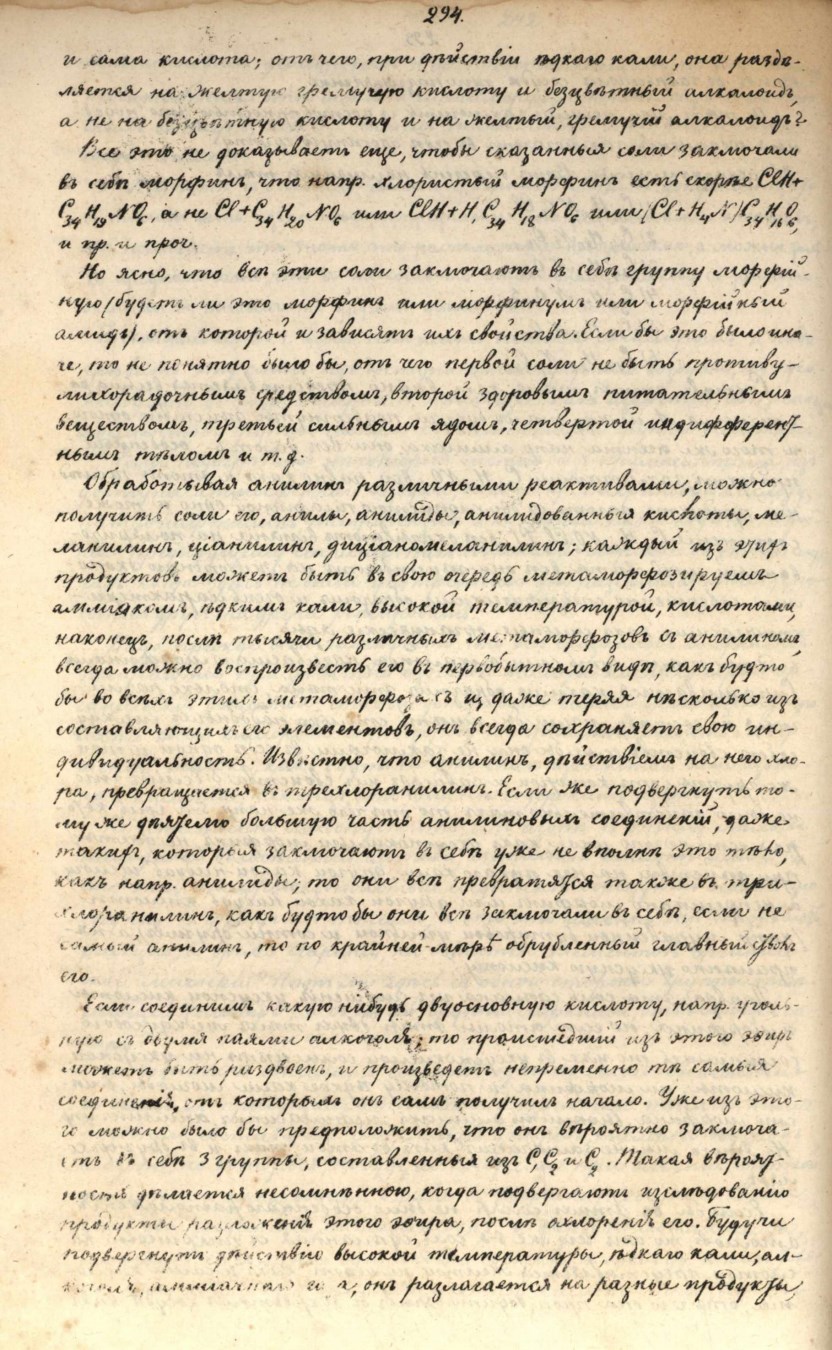 294.
и сама кислота; отъ чего, при дѣйствіи ѣдкаго кали, она раздѣ-
ляется на желтую гремучую кислоту и безцвѣтный алкалоидъ,
а не на безцвѣтную кислоту и на желтый, гремучій алкалоидъ?
Все это не доказываетъ еще, чтобы сказанныя соли заключали
въ себѣ морфинъ, что напр. хлористый морфинъ есть скорѣе ClH+
C34 H19 NO6, а не Cl+C34 H20 NO6 или ClH+H, C34 H18 NO6 или (Cl+H4N)C34H16O6,
и пр. и проч.
Но ясно, что всѣ эти соли заключаютъ въ себѣ группу морфій-
ную (будетъ ли это морфинъ или морфинумъ или морфійный
амидъ), отъ которой и зависятъ ихъ свойства. Если бы это было ина-
че, то не понятно было бы, отъ чего первой соли не быть противу-
лихорадочнымъ средствомъ, второй здоровымъ питательнымъ
веществомъ, третьей сильнымъ ядомъ, четвертой индифферент-
нымъ тѣломъ и т. д.
Обработывая анилинъ различными реактивами, можно
получить соли его, анилы, анилиды, анилидованныя кислоты, ме-
ланилинъ, ціанилинъ, диціаномеланилинъ; каждый изъ этихъ
продуктовъ можетъ быть въ свою очередь метаморфозируемъ
амміакомъ, ѣдкимъ кали, высокой температурой, кислотами,
наконецъ, послѣ тысячи различныхъ метаморфозовъ съ анилиномъ
всегда можно воспроизвесть его въ первобытномъ видѣ, какъ будто
бы во всѣхъ этихъ метаморфозахъ и даже теряя нѣсколько изъ
составляющихъ его элементовъ, онъ всегда сохраняетъ свою ин-
дивидуальность. Извѣстно, что анилинъ, дѣйствіемъ на него хло-
ра, превращается въ трехлоранилинъ. Если же подвергнуть то-
му же дѣятелю большую часть анилиновыхъ соединеній, даже
такихъ, которыя заключаютъ въ себѣ уже не вполнѣ это тѣло,
какъ напр. анилиды; то они всѣ превратятся также въ три-
хлоранилинъ, какъ будто бы они всѣ заключали въ себѣ, если не
самый анилинъ, то по крайней мѣрѣ обрубленный главный стволъ
его.
Если соединимъ какую нибудь двуосновную кислоту, напр. уголь-
ную съ двумя паями алкоголя; то происшедшій изъ этого эѳиръ
можетъ быть раздвоенъ, и произведетъ непременно тѣ самыя
соединенія, отъ которыхъ онъ самъ получилъ начало. Уже изъ это-
го можно было бы предположить, что онъ вѣроятно заключа-
етъ въ себѣ 3 группы, составленныя изъ C, C2 и C2. Такая вѣроят-
ность дѣлается несомнѣнною, когда подвергаютъ изслѣдованію
продукты разложенія этого эѳира, послѣ охлоренія его. Будучи
подвергнутъ дѣйствію высокой температуры, ѣдкаго кали, ал-
коголя, онъ разлагается на разные продукты,